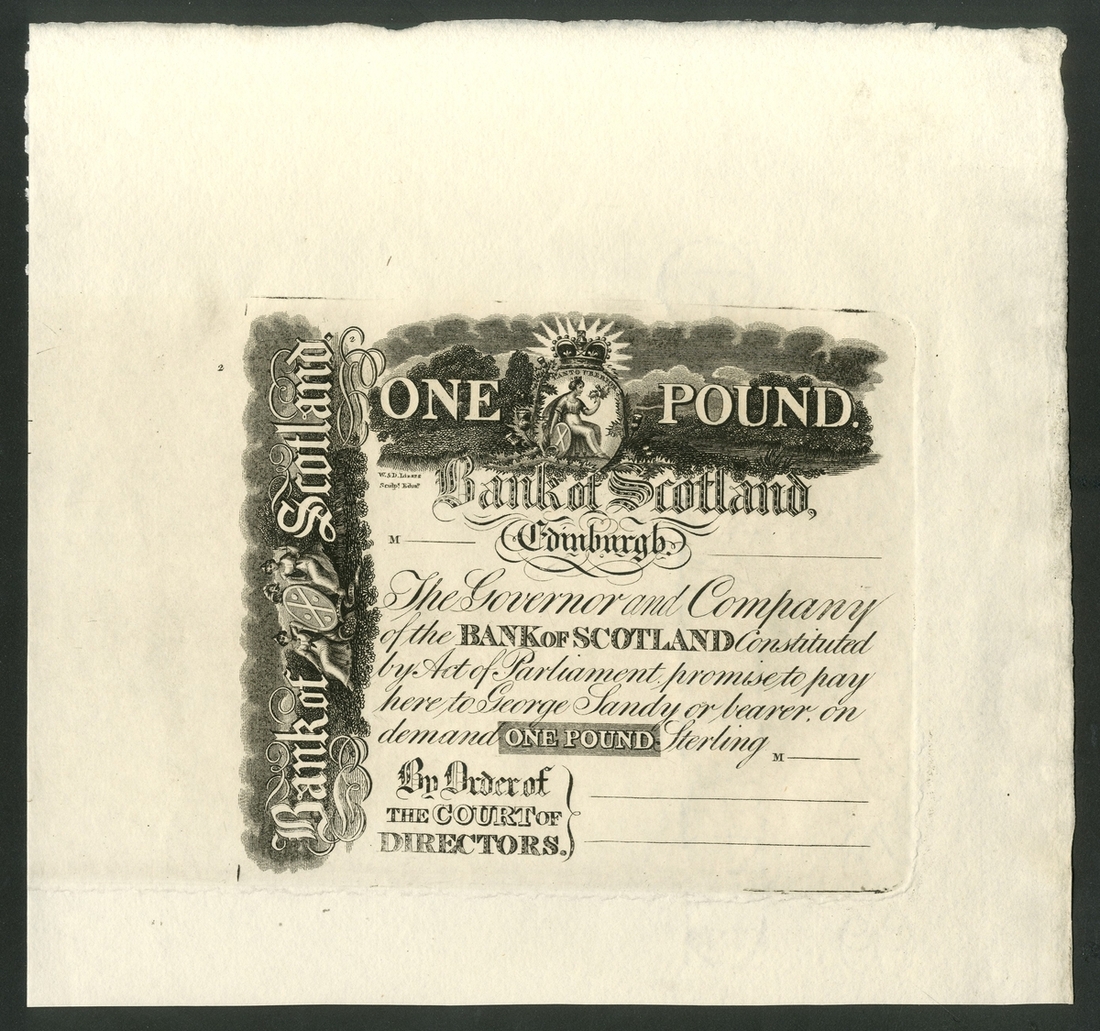 Bank of Scotland.
2
2
ONE POUND.
W. & D. Lizars
Sculpt. Edinr.
Bank of Scotland,
M
Edinburgh.
The Governor and Company
of the BANK OF SCOTLAND Constituted
by Act of Parliament, promise to pay
here to George Sandy or bearer, on
demand ONE POUND Sterling
M
By Order of
THE COURT OF
DIRECTORS.